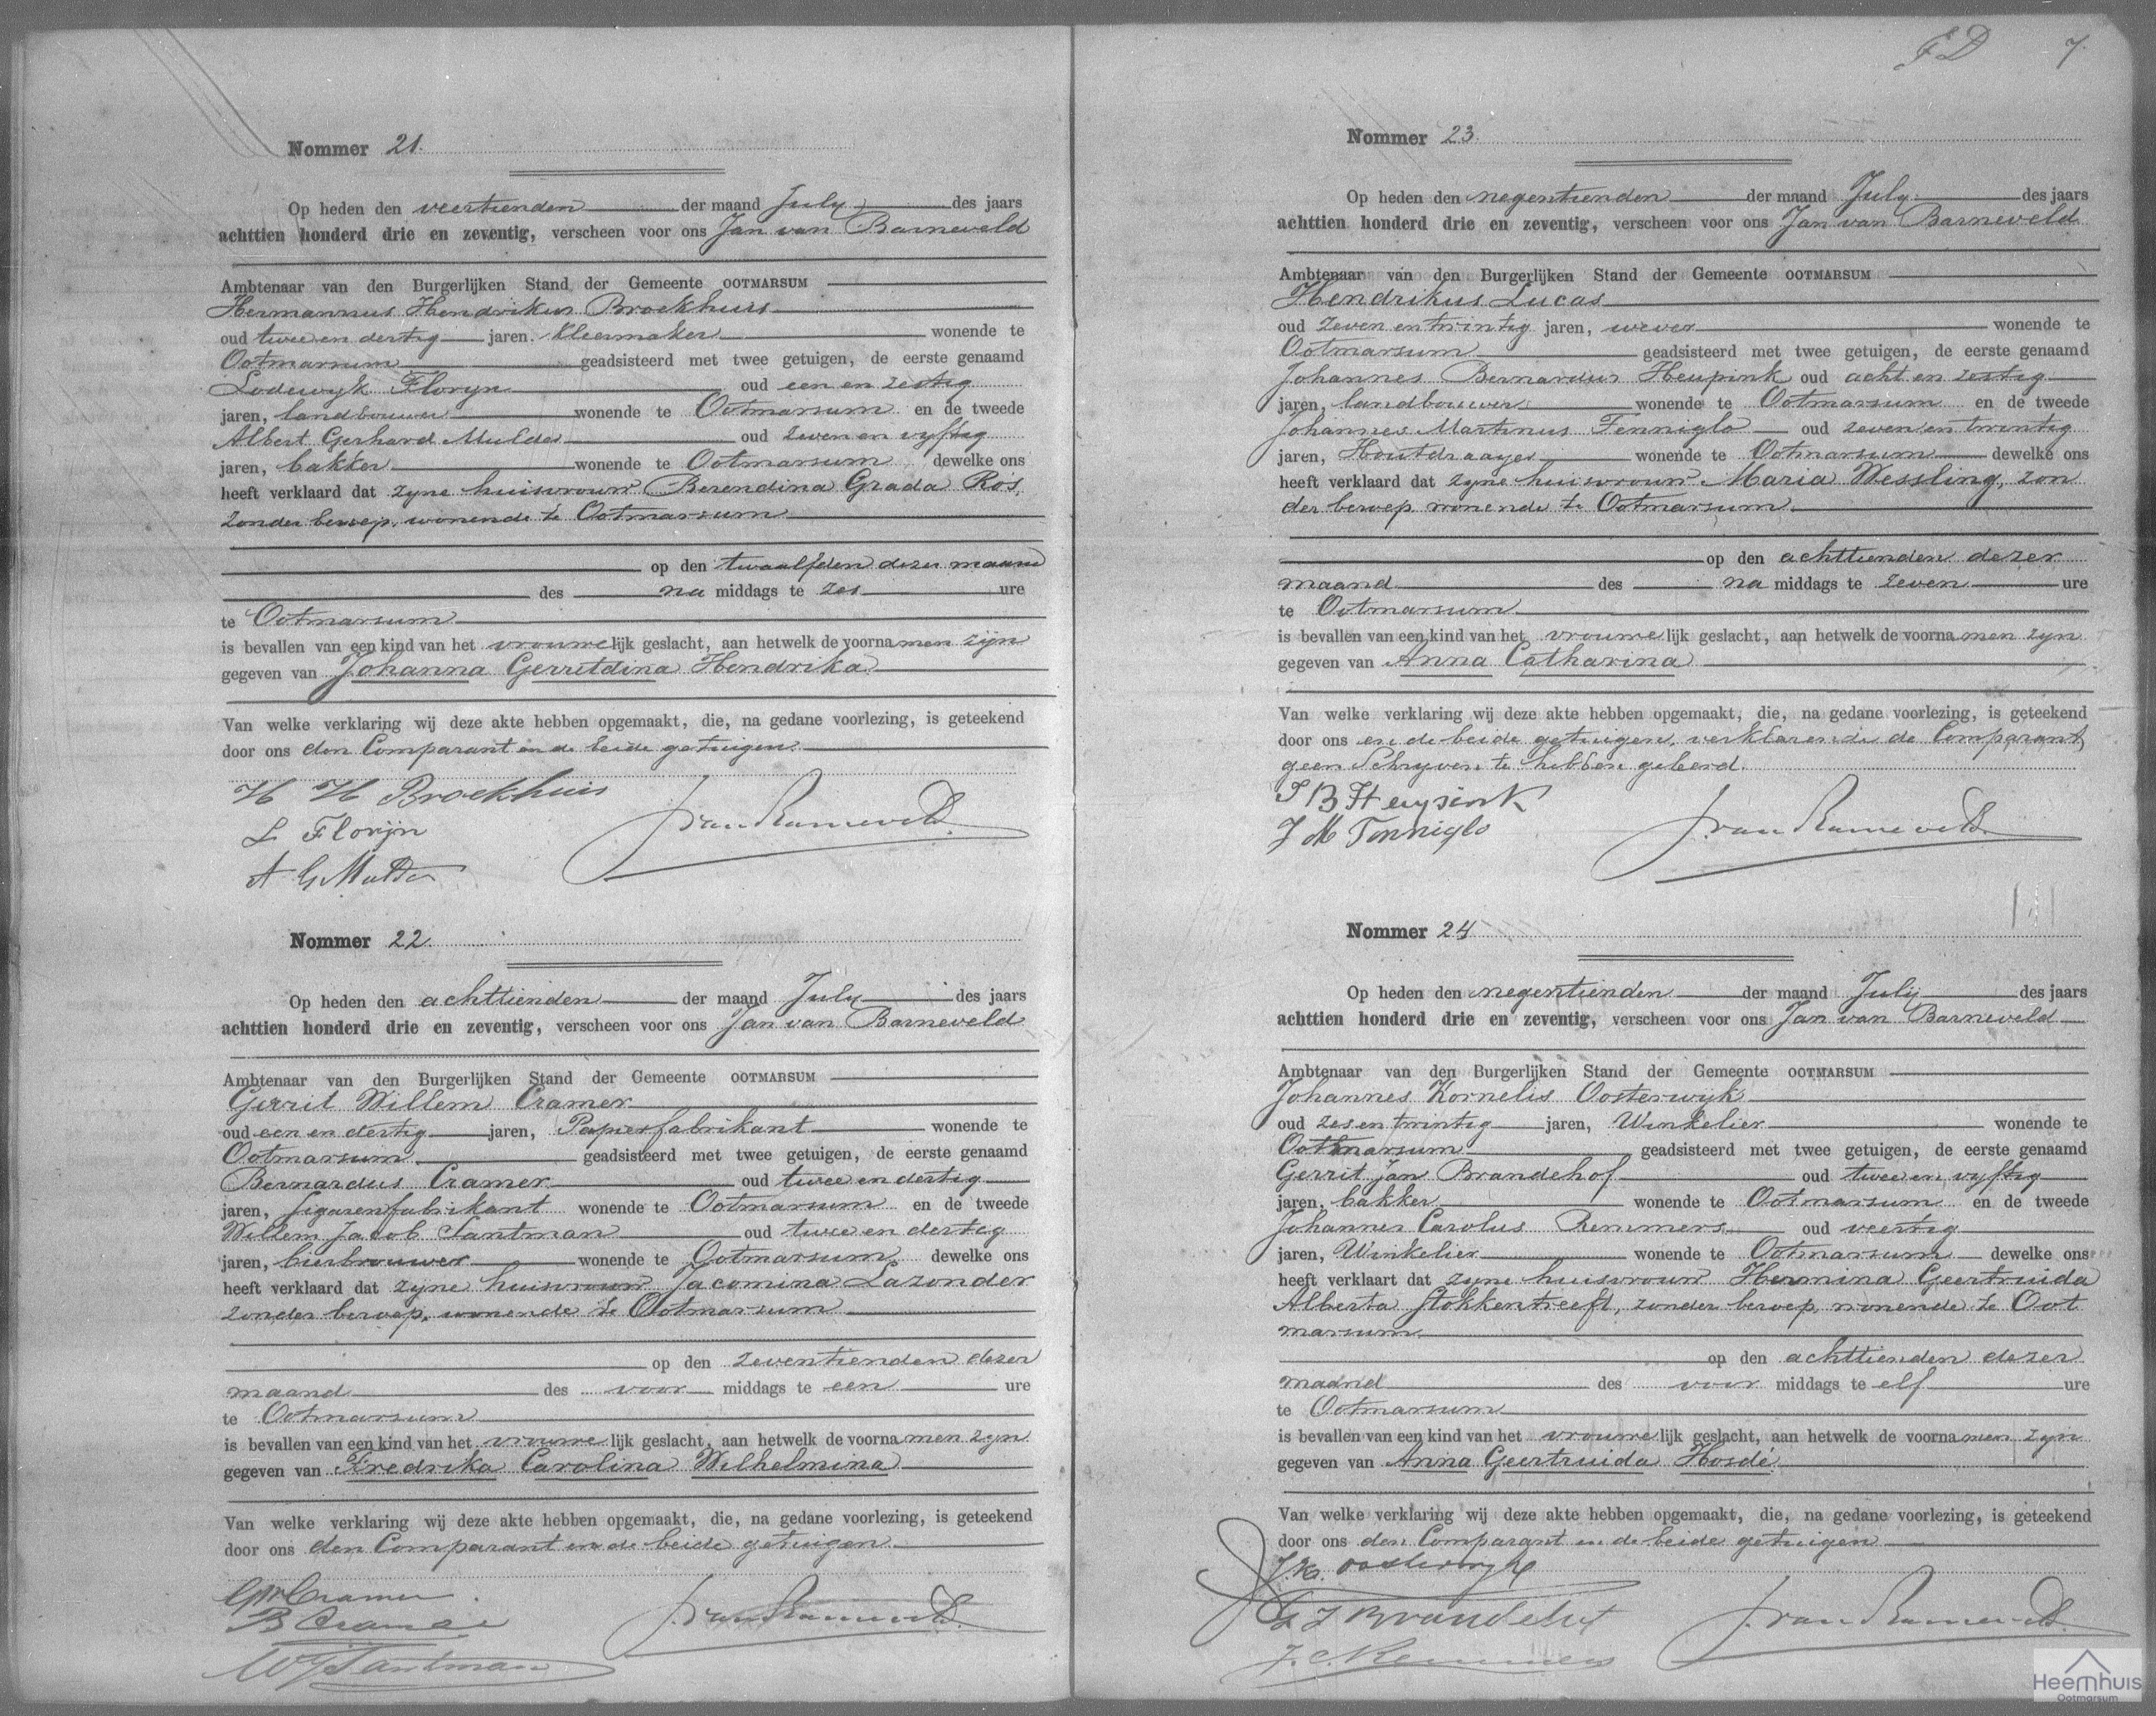 Nommer 21.
Op heden den veertienden der maand July des jaars
achttien honderd drie en zeventig, verscheen voor ons Jan van Barneveld
Ambtenaar van den Burgerlijken Stand der Gemeente OOTMARSUM
Hermannus Hendrikus Broekhuis
oud twee en dertig jaren, kleermaker wonende te
Ootmarsum geadsisteerd met twee getuigen, de eerste genaamd
Lodewyk Floryn oud een en zestig
jaren, landbouwer wonende te Ootmarsum en de tweede
Albert Gerhard Mulder oud zeven en vyftig
jaren, bakker wonende te Ootmarsum dewelke ons
heeft verklaard dat zyne huisvrouw Berendina Grada Ros,
zonder beroep, wonende te Ootmarsum
op den twaalfden dezer maand
des na middags te zes ure
te Ootmarsum
is bevallen van een kind van het vrouwelijk geslacht, aan hetwelk de voornamen zijn
gegeven van Johanna Gerritdina Hendrika
Van welke verklaring wij deze akte hebben opgemaakt, die, na gedane voorlezing, is geteekend
door ons den Comparant en de beide getuigen.
H H Broekhuis
L Florijn
A G Mulder
J van Barneveld
Nommer 22.
Op heden den achttienden der maand July des jaars
achttien honderd drie en zeventig, verscheen voor ons Jan van Barneveld
Ambtenaar van den Burgerlijken Stand der Gemeente OOTMARSUM
Gerrit Willem Cramer
oud een en dertig jaren, Papierfabrikant wonende te
Ootmarsum geadsisteerd met twee getuigen, de eerste genaamd
Bernardus Cramer oud twee en dertig
jaren, sigarenfabrikant wonende te Ootmarsum en de tweede
Willem Jacob Santman oud twee en dertig
jaren, bierbrouwer wonende te Ootmarsum dewelke ons
heeft verklaard dat zyne huisvrouw Jacomina Lazonder
zonder beroep, wonende te Ootmarsum
op den zeventienden dezer
maand des voor middags te een ure
te Ootmarsum
is bevallen van een kind van het vrouwelijk geslacht, aan hetwelk de voornamen zyn
gegeven van Fredrika Carolina Wilhelmina
Van welke verklaring wij deze akte hebben opgemaakt, die, na gedane voorlezing, is geteekend
door ons den Comparant en de beide getuigen
GW Cramer
B Cramer
WJ Santman
J van Barneveld
FD 7
Nommer 23.
Op heden den negentienden der maand July des jaars
achttien honderd drie en zeventig, verscheen voor ons Jan van Barneveld
Ambtenaar van den Burgerlijken Stand der Gemeente OOTMARSUM
Hendrikus Lucas
oud zeven en twintig jaren, wever wonende te
Ootmarsum geadsisteerd met twee getuigen, de eerste genaamd
Johannes Bernardus Heupink oud acht en zestig
jaren, landbouwer wonende te Ootmarsum en de tweede
Johannes Martinus Tenniglo oud zeven en twintig
jaren, Houtdraayer wonende te Ootmarsum dewelke ons
heeft verklaard dat zyne huisvrouw Maria Wessling, zon
der beroep wonende te Ootmarsum
op den achttienden dezer
maand des na middags te zeven ure
te Ootmarsum
is bevallen van een kind van het vrouwelijk geslacht, aan hetwelk de voornamen zyn
gegeven van Anna Catharina
Van welke verklaring wij deze akte hebben opgemaakt, die, na gedane voorlezing, is geteekend
door ons en de beide getuigen, verklarende de Comparant
geen Schryven te hebben geleerd.
J B Heupink
J M Tenniglo
J van Barneveld
Nommer 24
Op heden den negentienden der maand July des jaars
achttien honderd drie en zeventig, verscheen voor ons Jan van Barneveld
Ambtenaar van den Burgerlijken Stand der Gemeente OOTMARSUM
Johannes Kornelis Oosterwyk
oud zes en twintig jaren, Winkelier wonende te
Ootmarsum geadsisteerd met twee getuigen, de eerste genaamd
Gerrit Jan Brandehof oud twee en vyftig
jaren, bakker wonende te Ootmarsum en de tweede
Johannes Carolus Remmers oud veertig
jaren, Winkelier wonende te Ootmarsum dewelke ons
heeft verklaart dat zyne huisvrouw Hermina Geertruida
Alberta Stokkentreeft, zonder beroep, wonende te Oot
marsum
op den achttienden dezer
maand des voor middags te elf ure
te Ootmarsum
is bevallen van een kind van het vrouwelijk geslacht, aan hetwelk de voornamen zyn
gegeven van Anna Geertruida Hosdé
Van welke verklaring wij deze akte hebben opgemaakt, die, na gedane voorlezing, is geteekend
door ons den Comparant en de beide getuigen
J.K. Oosterwyk
G J Brandehof
J. C. Remmers
J van Barneveld
Heemhuis
Ootmarsum